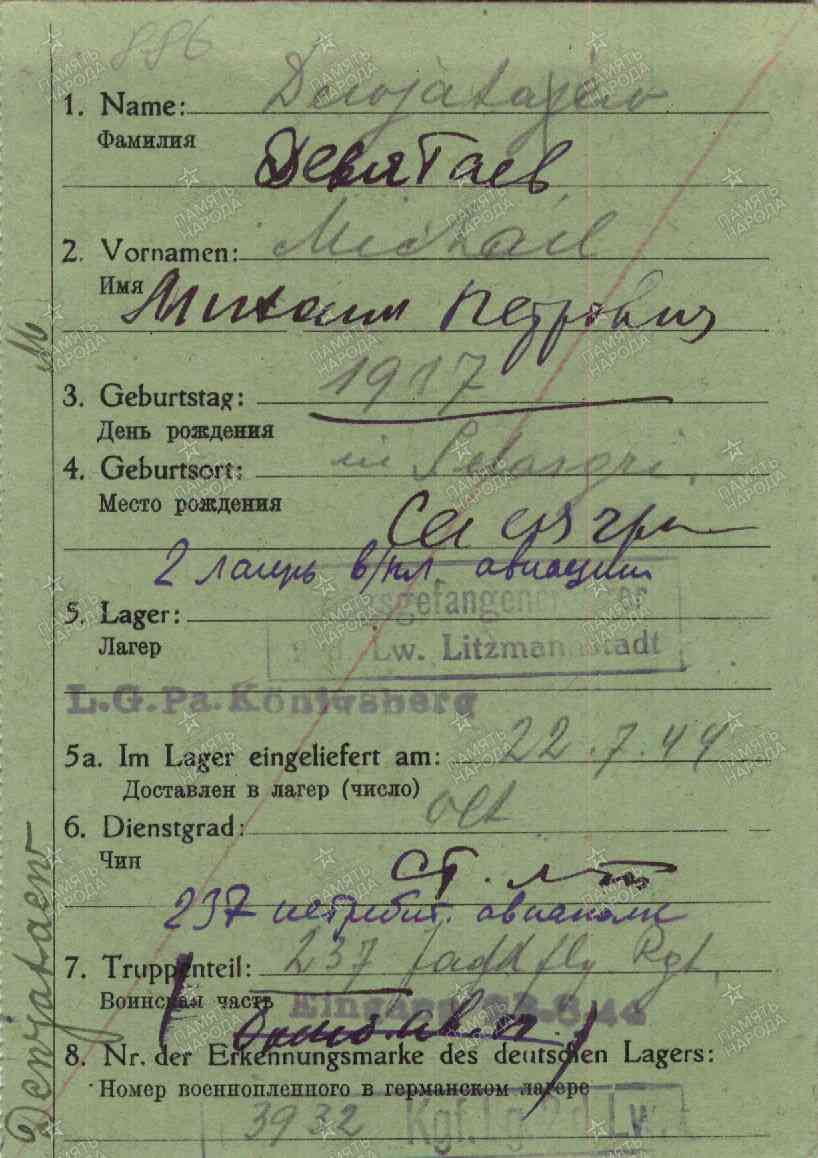 886
1. Name: Dewjatajew
Фамилия
Девятаев
2. Vornamen: Michail
Имя Михаил Петрович
3. Geburtstag: 1917
День рождения
4. Geburtsort: in
Место рождения
2 лагерь в/пл авиации
5. Lager:
Лагер
Lw. Litzmannstadt
L.G.Pa. Königsberg
5a. Im Lager eingeliefert am: 22.7.44
Доставлен в лагер (число)
6. Dienstgrad: Olt
Чин
ст. л-т
237 истребит. авиаполк
7. Truppenteil: 237 Jagdflg Rgt.
Воинская часть
Eingang
8. Nr. der Erkennungsmarke des deutschen Lagers:
Номер военнопленного в германском лагере
3932 Kgf. Lg. 2 d. Lw.
Dewjataew
М
ПАМЯТЬ НАРОДА